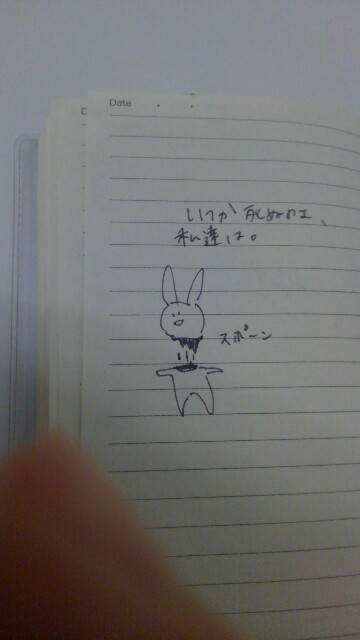 Date
いつか死ぬのよ、
私達は。
スポーン